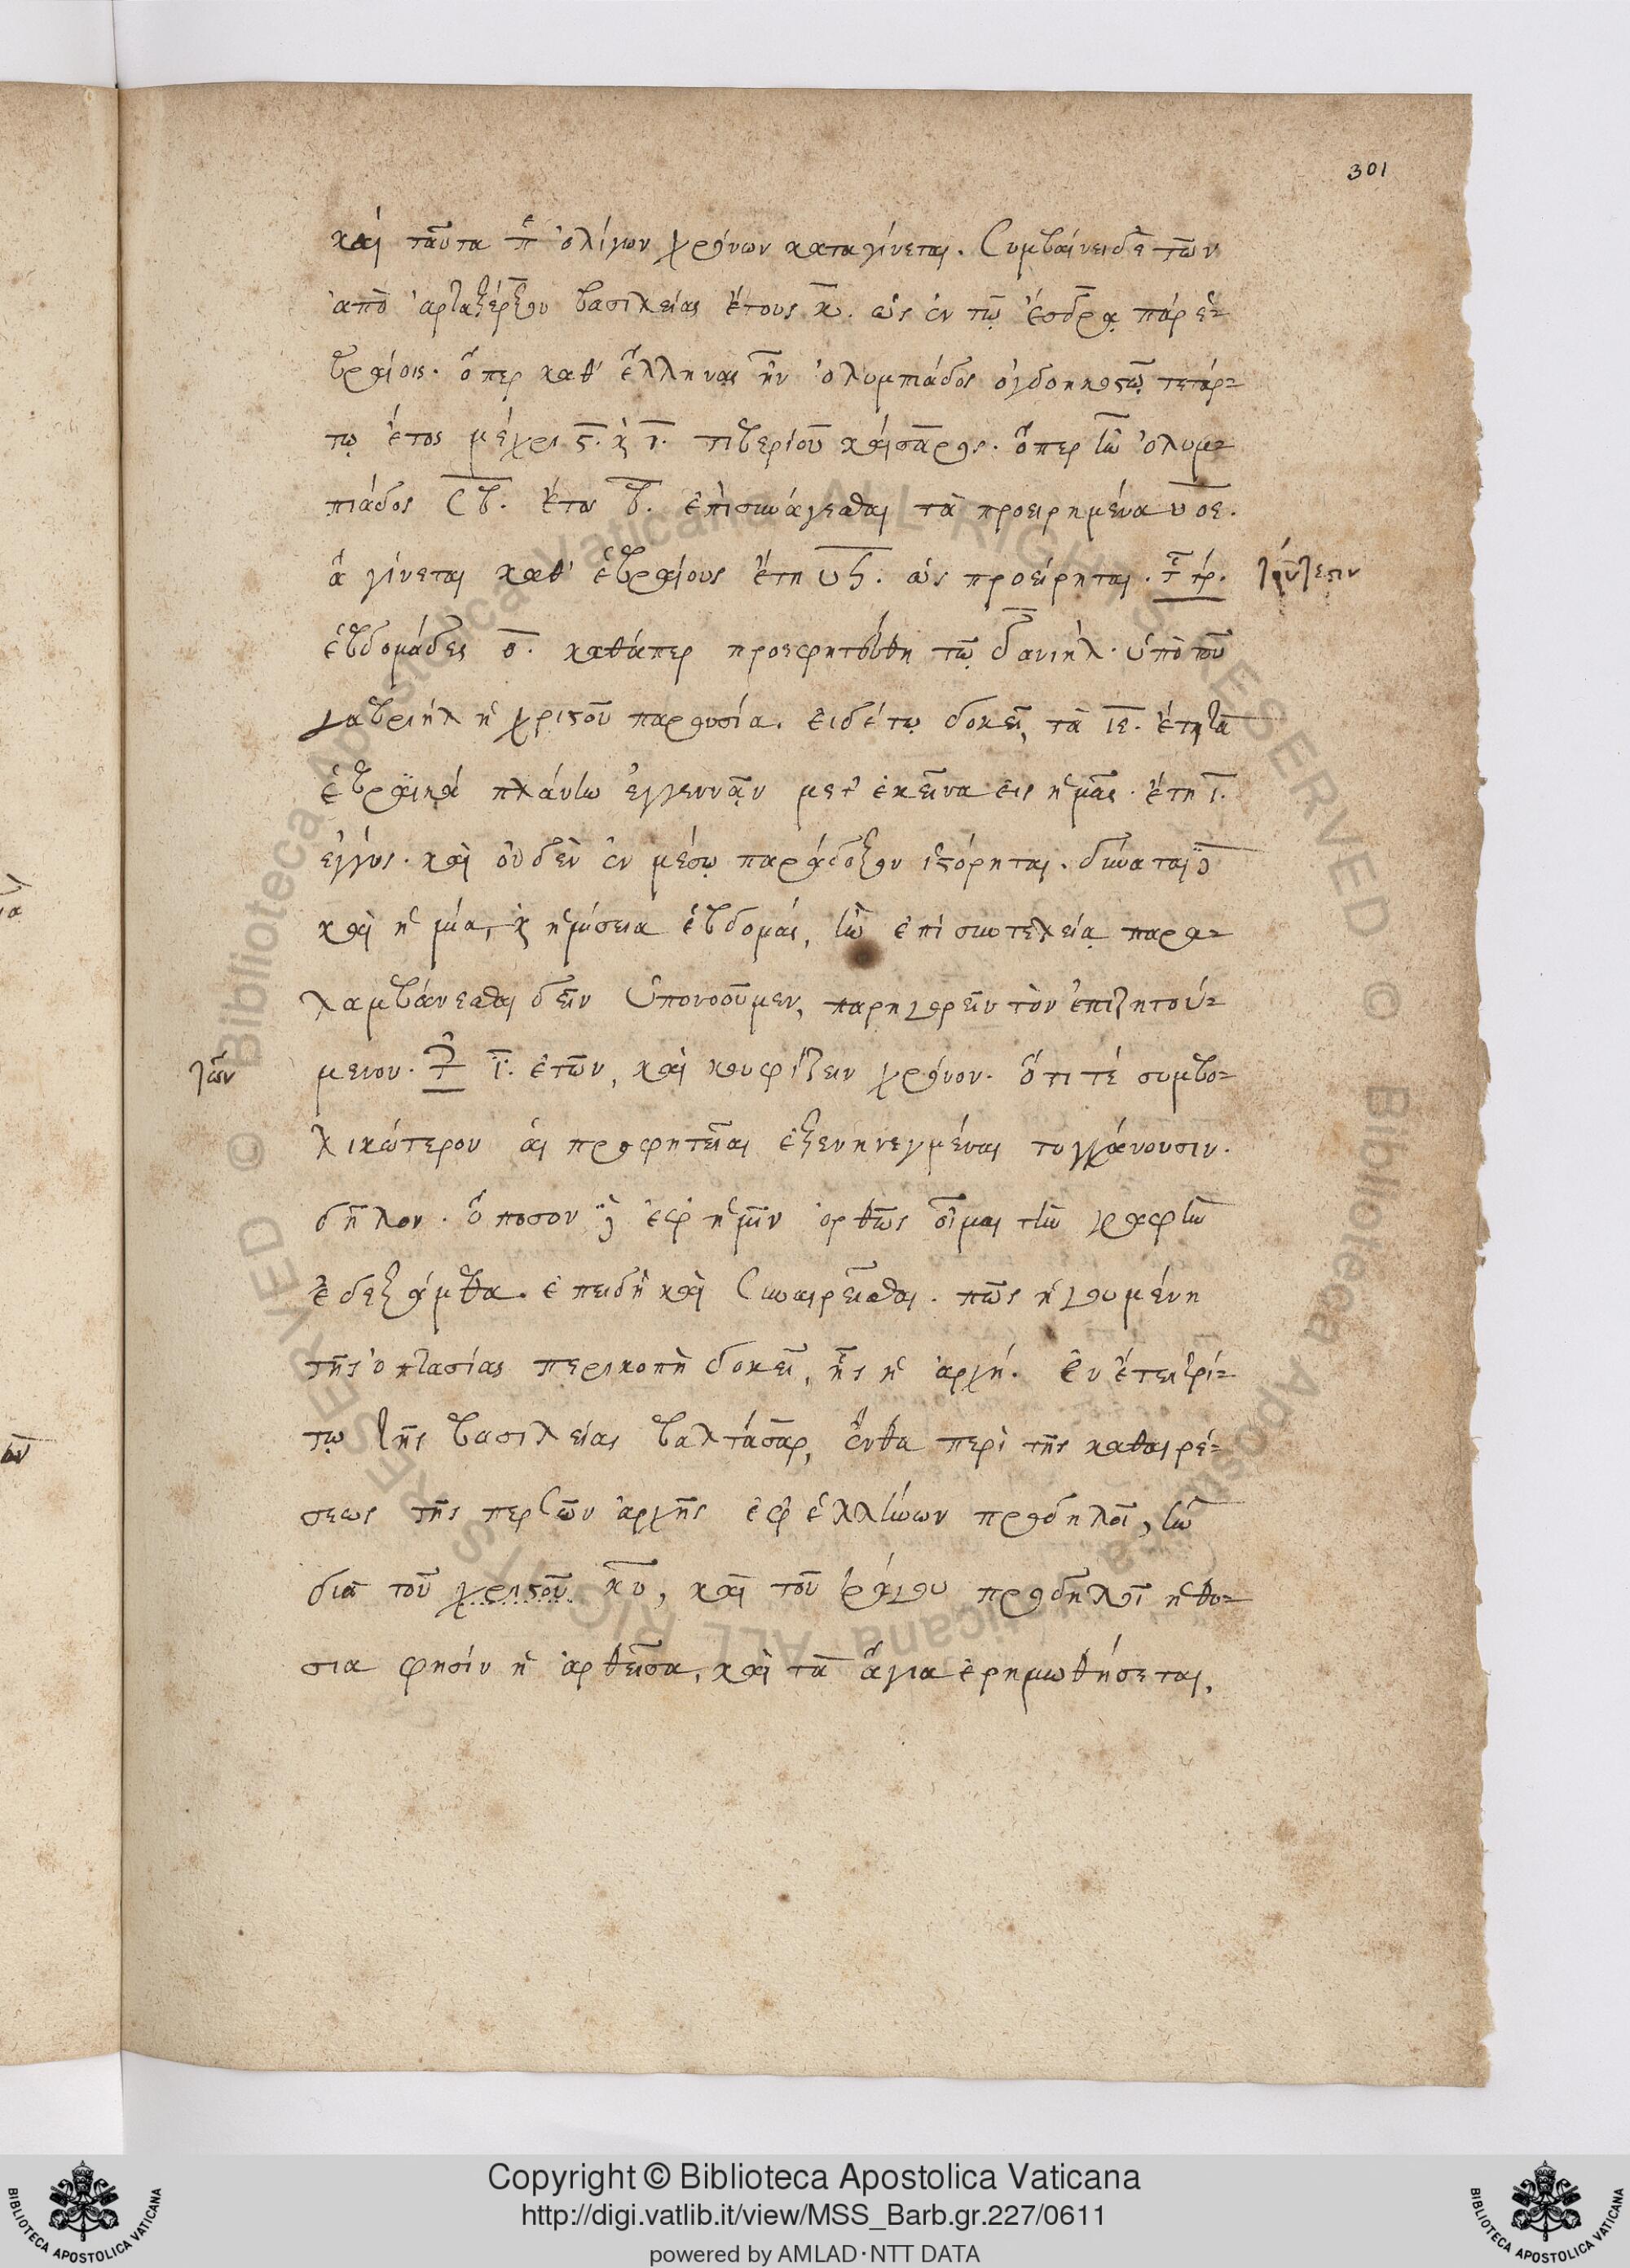 301
καὶ ταῦτα π̅ ὀλίγων χρόνων καταγίνεται. Συμβαίνει δὲ τῶν
ἀπὸ ἀρταξέρξου βασιλείας ἔτους κ̅. ὡς ἐν τῷ ἔσδρᾳ πάρ ἑ-
βραίοις. ὅπερ καθ' ἕλληνας ἦν ὀλυμπιάδος ὀγδοηκοςῷ τετάρ-
τῳ ἔτος μέχρι ς̅. κ̀ ι̅. τιβερίου καίσαρος. ὅπερ ἦν ὀλυμ-
πιάδος σ̅β̅. ἔτος β̅. ἐπισυνάγεσθαι τὰ προειρημένα υ̅ο̅ε̅.
ἃ γίνεται καθ' ἑβραίους ἔτη υ̅ϟ̅. ὡς προείρηται.
ἑβδομάδες ο̅. καθάπερ προεφητεύθη τῷ δανιὴλ. ὑπὸ τοῦ
γαβριὴλ ἡ χριςοῦ παρουσία. εἰ δέ τῳ δοκεῖ, τὰ ι̅ε̅. ἔτη τὰ
ἑβραϊκὰ πλάνην ἐγγεννᾷν μετ' ἐκεῖνα εἰς ἡμᾶς. ἔτη ι̅.
ἐγγύς. καὶ οὐδὲν ἐν μέσῳ παράδοξον ἱςόρηται. δύναται
καὶ ἡ μία, κ̀ ἡμίσεια ἑβδομάς, ἣν ἐπὶ συντελείᾳ παρα-
λαμβάνεσθαι δεῖν ὑπονοοῦμεν, παρηγορεῖν τὸν ἐπιζητού-
τῶν
μενον. ι̅. ἐτῶν, καὶ κουφίζειν χρόνον. ὅτι τὲ συμβο-
λικώτερον αἱ προφητεῖαι ἐξενηνεγμέναι τυγχάνουσιν.
δῆλον. ὁποσον ἐφ ἡμῖν ὀρθῶς οἶμαι τὴν γραφὴν
ἐδεξάμεθα. ἐπειδὴ καὶ Συναιρεῖσθαι. πῶς ἡγουμένη
τῆς ὀπτασίας περικοπὴ δοκεῖ, ἧς ἡ ἀρχή. ἐν ἔτει τρί-
τῳ τῆς βασιλείας βαλτάσαρ, ἔνθα περὶ τῆς καθαιρέ-
σεως τῆς περσῶν ἀρχῆς ἐφ ἑλλήνων προδηλοῖ, ἣν
διὰ τοῦ χριςοῦ κ̅υ̅, καὶ τοῦ τράγου προδηλοῖ ἡ θυ-
σια φησίν ἡ ἀρθεῖσα, καὶ τὰ ἅγια ἐρημωθήσεται,
Copyright © Biblioteca Apostolica Vaticana
http://digi.vatlib.it/view/MSS_Barb.gr.227/0611
powered by AMLAD·NTT DATA